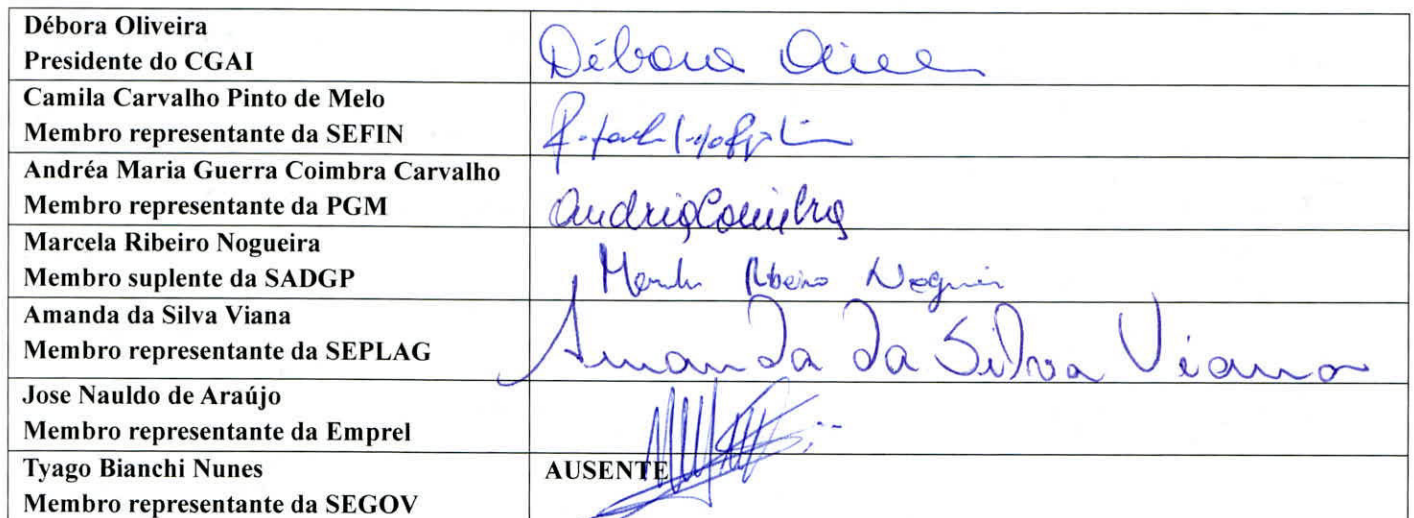 Débora Oliveira
Presidente do CGAI
Débora
Camila Carvalho Pinto de Melo
Membro representante da SEFIN
Andréa Maria Guerra Coimbra Carvalho
Membro representante da PGM
Marcela Ribeiro Nogueira
Membro suplente da SADGP
Ribeiro
Amanda da Silva Viana
Membro representante da SEPLAG
Amanda da Silva Viana
Jose Nauldo de Araújo
Membro representante da Emprel
Tyago Bianchi Nunes
Membro representante da SEGOV
AUSENTE